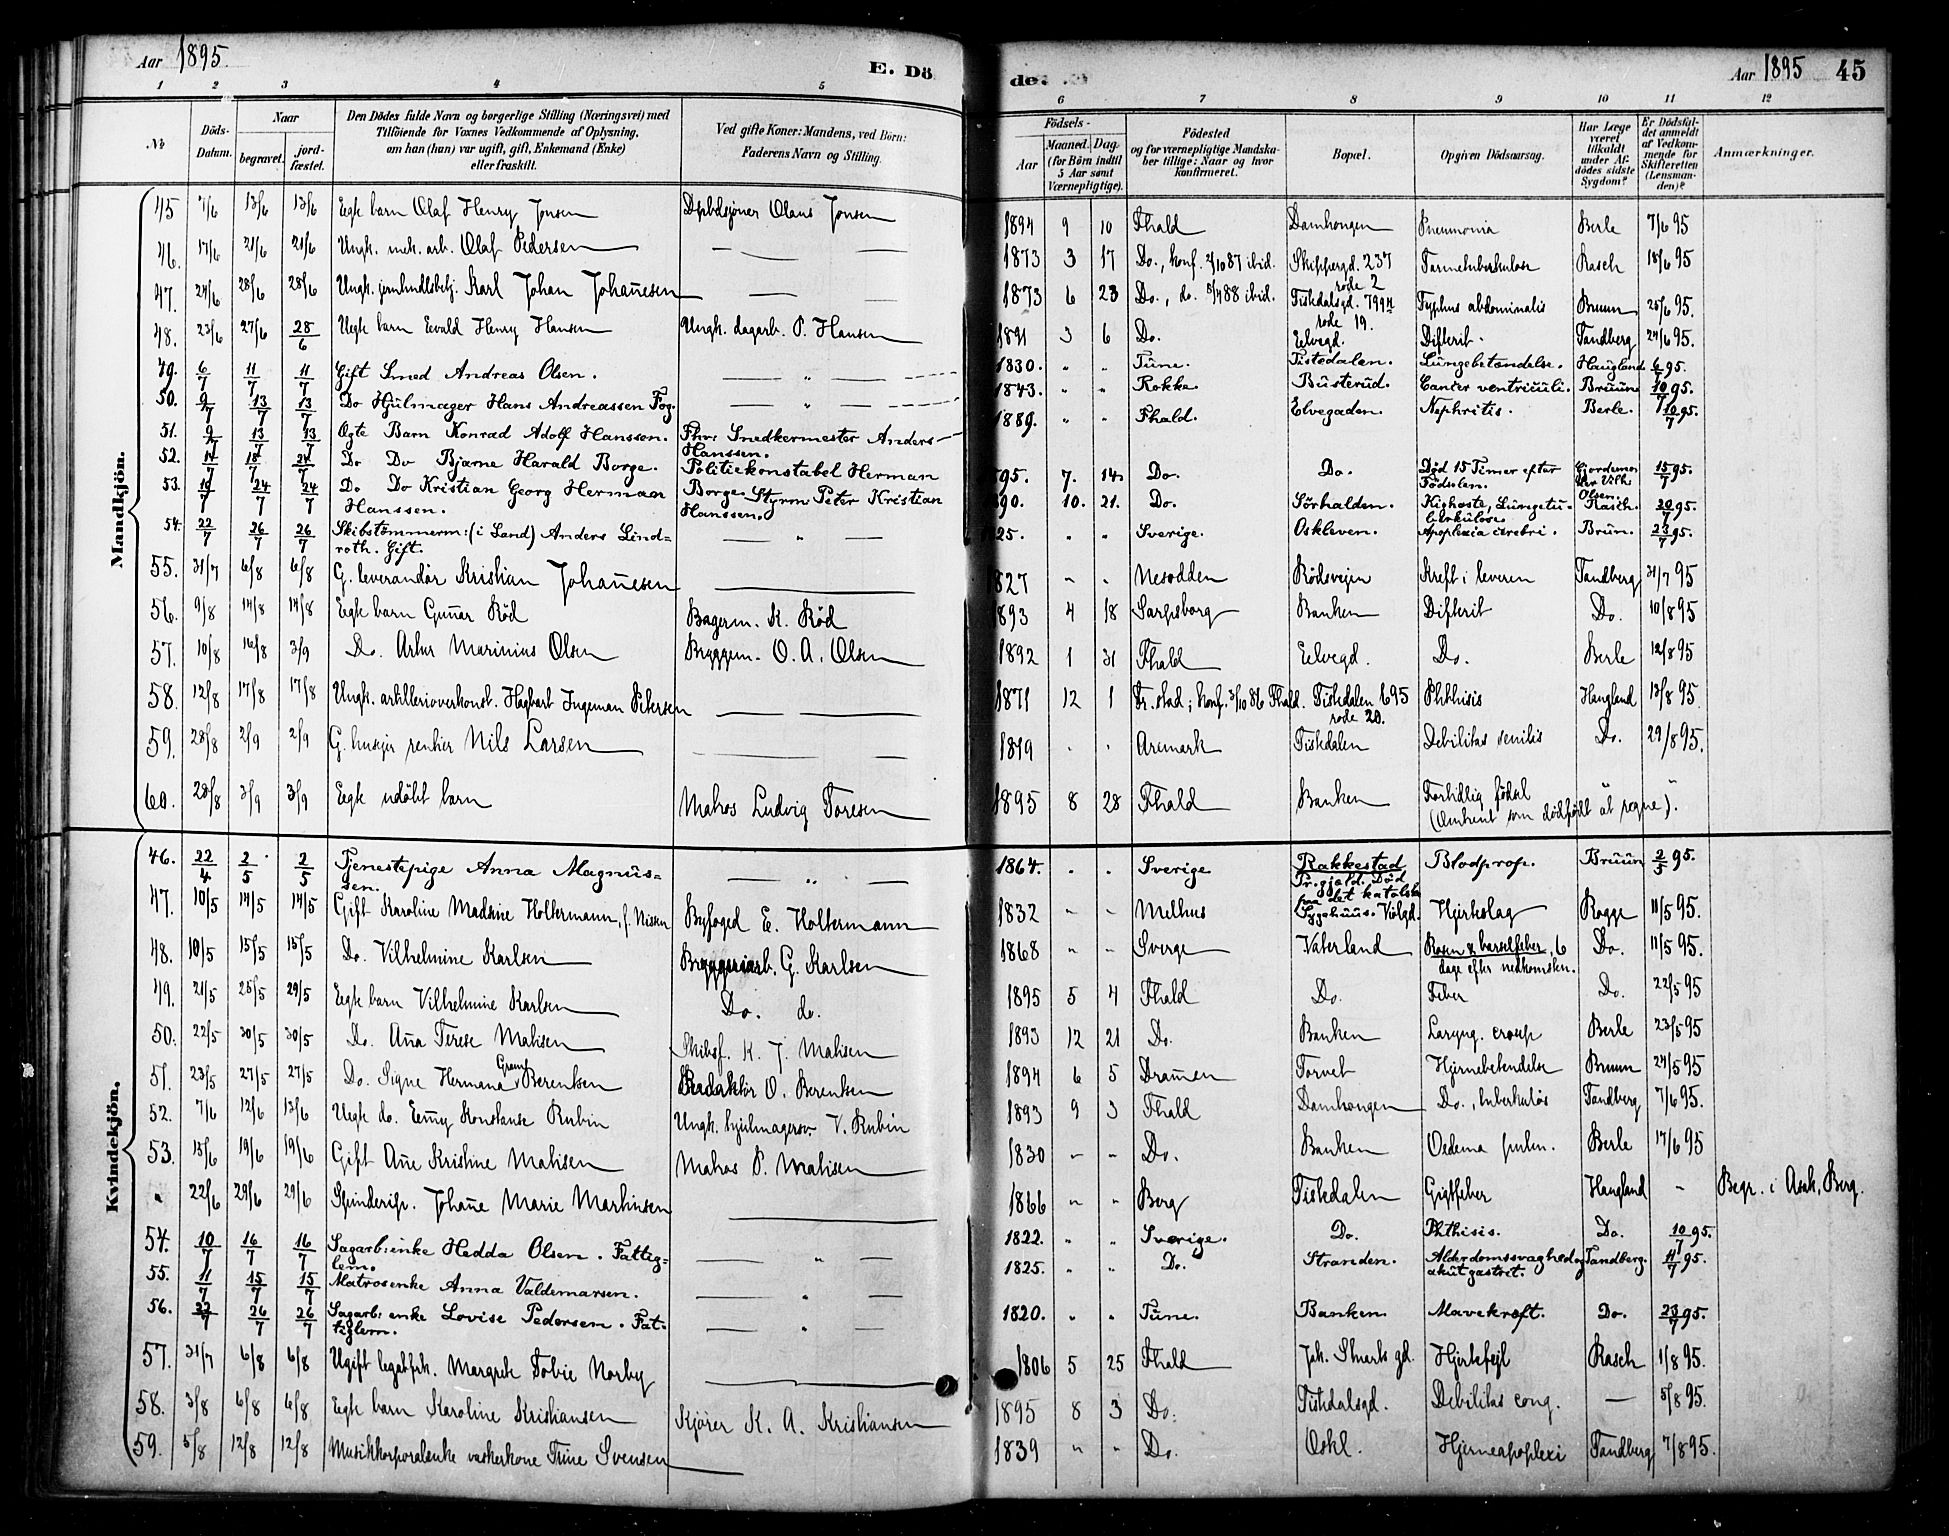 Aar 1895.
E. Dö de.
Aar 1895 45
1 2 3 4 5 6 7 8 9 10 11 12
No
Döds-Datum.
Naar
begravet.
jord-fæstet.
Den Dödes fulde Navn og borgerlige Stilling (Næringsvei) med
Tilföiende for Voxnes Vedkommende af Oplysning,
om han (hun) var ugift, gift, Enkemand (Enke)
eller fraskilt.
Ved gifte Koner: Mandens, ved Börn:
Faderens Navn og Stilling.
Födsels-
Aar
Maaned. Dag.
(for Börn indtil
5 Aar samt
Værnepligtige).
Födested
og for værnepligtige Mandska-
ber tillige: Naar og hvor
konfirmeret.
Bopæl.
Opgiven Dödsaarsag.
Har Læge
været
tilkaldt
under Af-
dödes sidste
Sygdom?
Er Dödsfal-
det anmeldt
af Vedkom-
mende for
Skifteretten
(Lensman-
den)?
Anmærkninger.
Mandkjön.
45 7/6 13/6 13/6 Egte barn Olaf Henry Jonsen Olaus Jonsen 1894 9 10 Fhald Damhougen Pneumonia Berle 7/6 95
46. 17/6 21/6 21/6 Ungk. mek. arb. Olaf Pedersen 1873 3 17 Do., konf. 2/10 87 ibid. Skippergd. 237 rode 2 Tarmtuberkulose Rasch 18/6 95
47. 24/6 28/6 28/6 Ungk. jernhndlsbetj. Karl Johan Johanesen 1873 6 23 Do., do. 8/4 88 ibid. Tistedalsgd. rode 19. Typhus abdominalis Bruun 25/6 95.
48. 23/6 27/6 28/6 Uegte barn Eevald Henry Hansen Ungk. dagarb. P. Hansen 1891 3 6 Do. Eelvegd. Difterit. Tandberg 24/6 95.
49. 6/7 11/7 11/7 Gift Smed Andreas Olsen. " 1830. " " Tune. Tistedalen. Lungebetændelse. Haugland 6/7 95.
50. 9/7 13/7 13/7 Do Hjulmager Hans Andreassen Fog. " 1843. " " Rokke. Busterud. Cancer ventriculi. Bruun 10/7 95.
51. 9/7 13/7 13/7 Ægte Barn Konrad Adolf Hanssen. Fhv: Snedkermester Anders Hanssen. 1889. " " Fhald. Elvegaden. Nephritis. Berle. 10/7 95.
52. 14/7 18/7 24/7 Do Do Bjarne Harald Borge. Politiekonstabel Herman Borge. 895. 7. 14. Do. Do. Död 15 Timer efter Födselen. Gjordemor Olsen. 15/7 95.
53. 19/7 24/7 24/7 Do Do Kristian Georg Herman Hanssen. Styrm Peter Kristian Hanssen. 890. 10. 21. Do. Sörhalden. Kighoste, Lungetuberkulose. Rasch. 20/7 95.
54. 22/7 26/7 26/7 Skibstömmerm: (i Land) Anders Lindroth. Gift. " 25. " " Sverige. Oskleven. Apoplexia cerebri. Bruun. 23/7 95.
55. 31/7 6/8 6/8 G. leverandör Kristian Johanesen 1827 " " Nesodden Rödsveien Kreft i leveren Tandberg 31/7 95
56. 9/8 14/8 14/8 Egte barn Gunar Röd Bagerm. K. Röd 1893 4 18 Sarpsborg Banken Difterit Do. 10/8 95
57. 10/8 16/8 3/9 Do. Artur Marinius Olsen Bryggem. O. A. Olsen 1892 1 31 Fhald Eelvegd. Do. Berle 12/8 95
58. 12/8 17/8 17/8 Ungk. artillerioverkonst. Hagbart Ingeman Petersen 1871 12 1 Fr.stad; konf. 3/10 86 Fhald. Tistedalen 695 rode 20. Phthisis Haugland 13/8 95
59. 28/8 2/9 2/9 G. huseier rentier Nils Larsen 1819 " " Aremark Tistedalen Debilitas senilis Do. 29/8 95.
60. 28/8 3/9 3/9 Egte udöbt barn Matros Ludvig Toresen 1895 8 28 Fhald Banken Fortidlig födsel (Omtrent som dödfödt at regne). " "
Kvindekjön.
46. 22/4 2/5 2/5 Tjenestepige Anna Magnussen. " 1864. " " Sverige Rakkestad Pr.gjæld. Död paa det katolske Sygehuus. Violgd. Blodprop. Bruun 2/5 95.
47. 10/5 14/5 14/5 Gift Karoline Madsine Holtermann, f. Nissen Byfoged E. Holtermann 1832 " " Melhus Hjerteslag Rogge 11/5 95.
48. 10/5 15/5 15/5 Do. Vilhelmine Karlsen Bryggeriarb. G. Karlsen 1868 " " Sverge Vaterland Rosen & barselfeber, 6 dage efter nedkomsten. Do. 11/5 95.
49. 21/5 25/5 29/5 Egte barn Vilhelmine Karlsen Do. do. 1895 5 4 Fhald Do. Feber Do. 22/5 95
50. 22/5 30/5 30/5 Do. Ana Terese Matisen Skibsf. K. J. Matisen 1893 12 21 Do. Banken Laryng. croup Berle 23/5 95
51. 23/5 27/5 27/5 Do. Signe Hermana Gram Berentsen Redaktör O. Berentsen 1894 6 5 Dramen Torvet Hjernebetendelse Bruun 24/5 95
52. 7/6 12/6 13/6 Uegte do. Emy Konstanse Rubin Ungk. hjulmagersv. V. Rubin 1893 9 3 Fhald Damhougen Do., tuberkulös Tandberg 7/6 95.
53. 15/6 19/6 19/6 Gift Ane Kristine Matisen Matros P. Matisen 1830 " " Do. Banken Oedema pulm. Berle 17/6 95
" 22/6 29/6 29/6 Spinderip. Johane Marie Martinsen 1866 " " Berg Tistedalen Gigtfeber Haugland - Begr. i Asak, Berg.
54. 10/7 16/7 16/7 Sagarb: enke Hedda Olsen. Fattiglem. " 1822. " " Sverige. Do. Phthisis. Do. 10/7 95.
55. 11/7 15/7 15/7 Matrosenke Anna Valdemarsen. " 1825. " " Do. Stranden. Alderdomssvaghed og akut gastrit. Tandberg. 11/7 95.
56. 22/7 26/7 26/7 Sagarb: enke Lovise Pedersen. Fattiglem. " 1820. " " Tune. Banken. Mavekræft. Do. 23/7 95.
57. 31/7 6/8 6/8 Ugift legatfrk. Margrete Tobie Norby 1806 5 25 Fhald Jak. Stuarts gd. Hjertefejl Rasch 1/8 95.
58. 3/8 6/8 6/8 Egte barn Karoline Kristiansen Kjörer K. A. Kristiansen 1895 8 3 Do. Tistedalsgd. Debilitas cong. — 5/8 95.
59. 5/8 12/8 12/8 Musikkorporalenke vaskerkone Trine Svensen 1839 " " Do. Oskl. Hjerneapoplexi Tandberg 7/8 95.